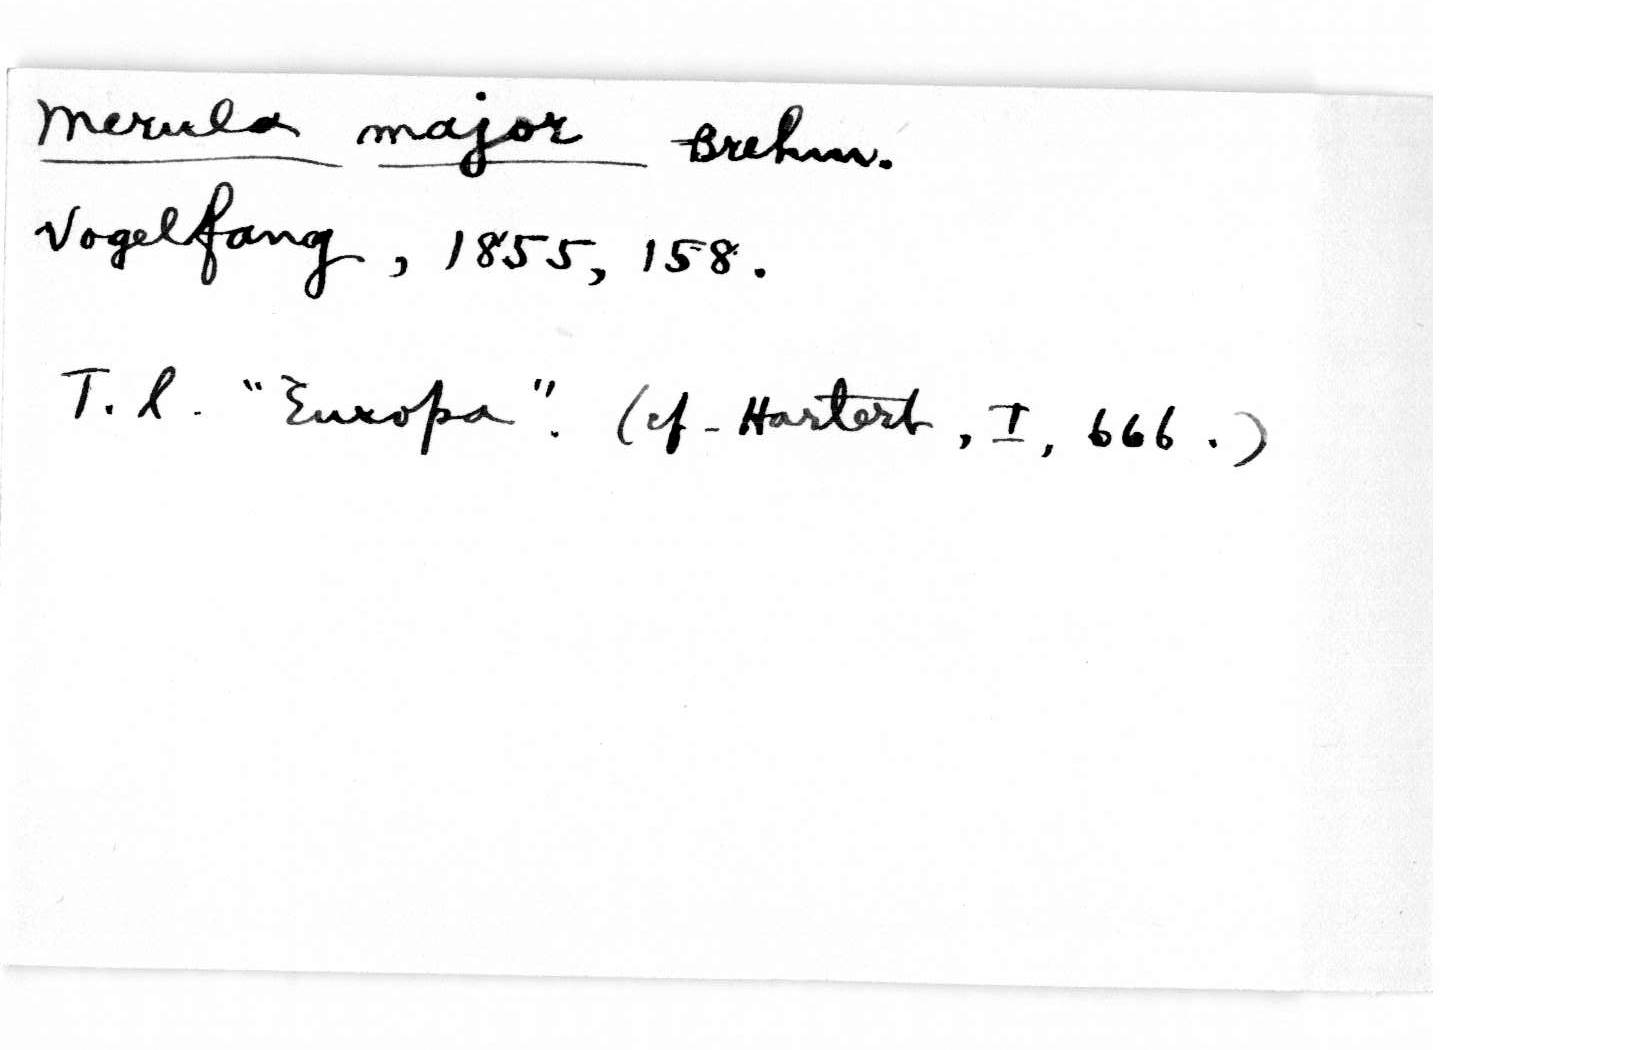 Merula major Brehm.
Vogelfang, 1855, 158.
T. l. "Europa". (cf. Hartert, I, 666.)